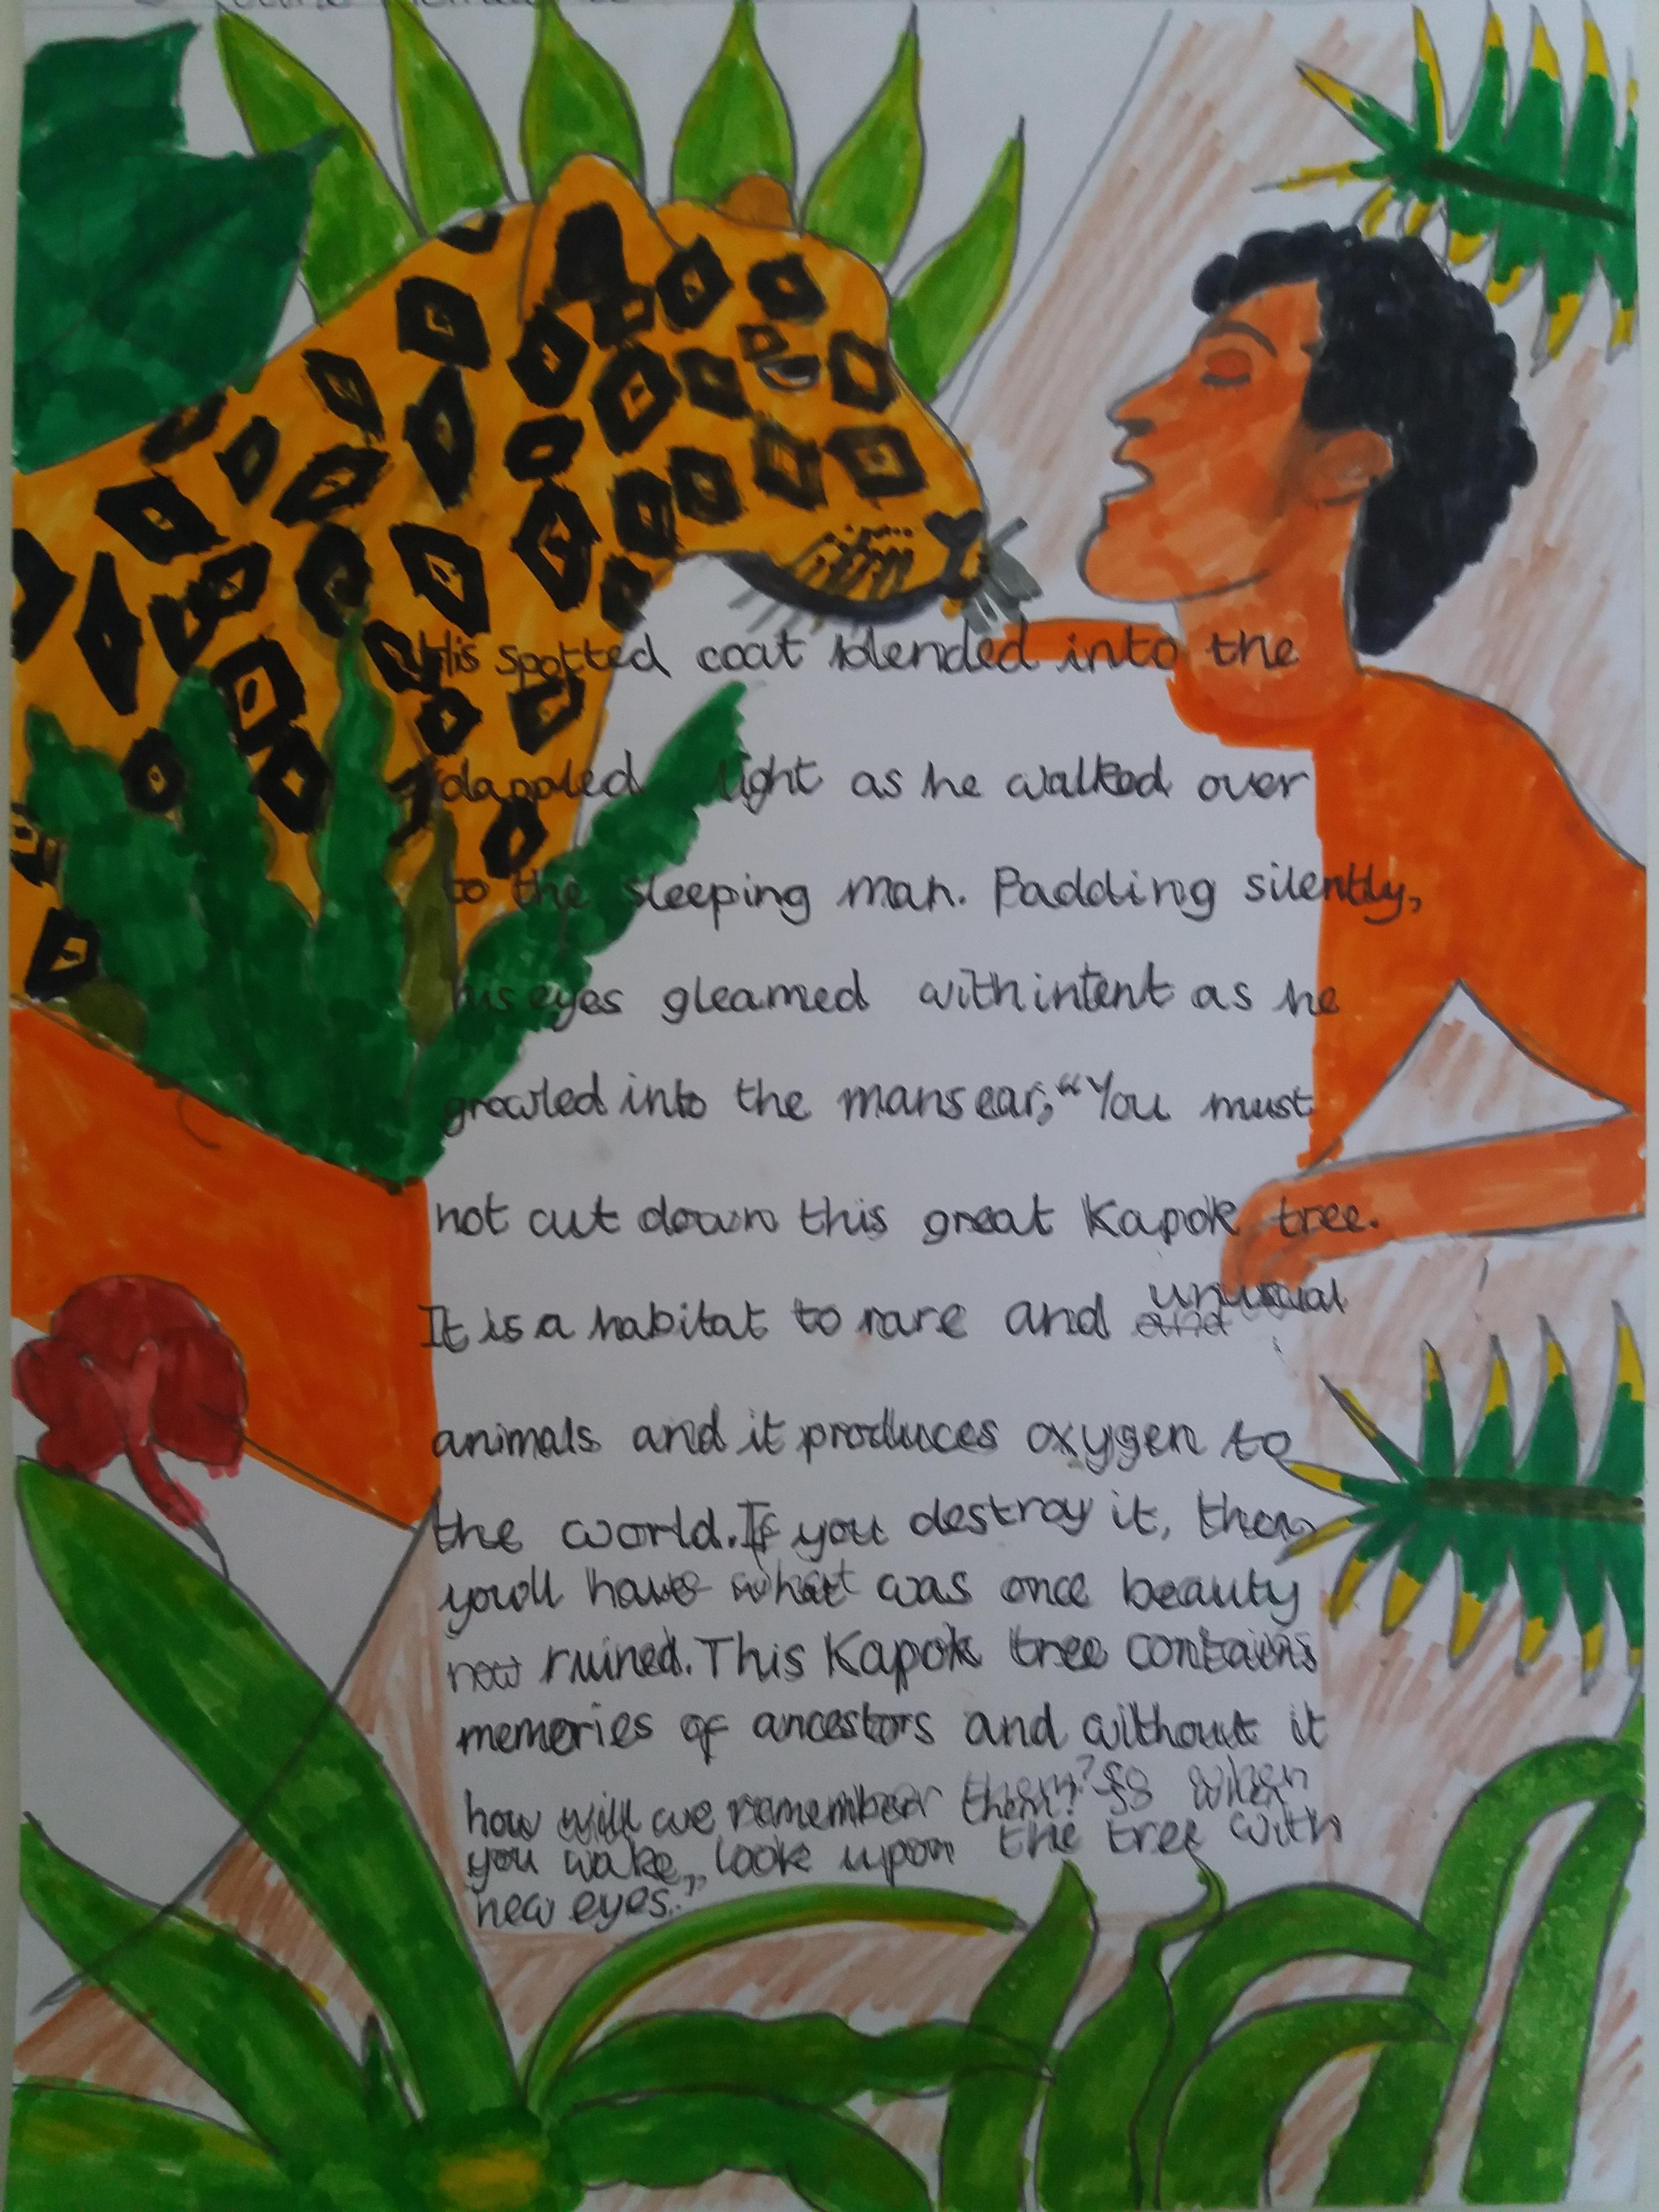 His spotted coat blended into the
dappled light as he walked over
to the sleeping man. Padding silently,
his eyes gleamed with intent as he
growled into the mans ear, "You must
not cut down this great Kapok tree.
It is a habitat to rare and unusual
animals and it produces oxygen to
the world. If you destroy it, then
you'll have what was once beauty
now ruined. This Kapok tree contains
memories of ancestors and without it
how will we remember them? So when
you wake, look upon the tree with
new eyes."